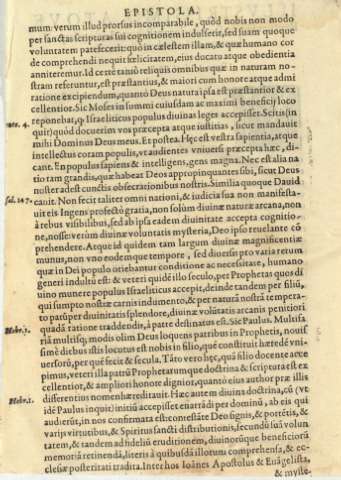 EPISTOLA.
mum: verum illud prorsus incomparabile, quòd nobis non modo
per sanctas scripturas sui cognitionem indulserit, sed suam quoque
voluntatem patefecerit: quò in cælestem illam, & quæ humano cor
de comprehendi nequit fœlicitatem, eius ducatu atque obedientia
anniteremur. Id certè tantũ reliquis omnibus quæ in naturam no-
stram referuntur, est præstantius, & maiori cum honore atque admi
ratione excipiendum, quantò Deus natura ipsa est præstantior & ex
cellentior. Sic Moses in summi cuiusdam ac maximi beneficij loco
reponebat, q Israeliticus populus diuinas leges accepisset. Scitis (in
Deute. 4.
quit) quòd docuerim vos præcepta atque iustitias, sicut mandauit
mihi Dominus Deus meus. Et postea. Hęc est vestra sapientia, atque
intellectus coram populis, vt audientes vniuersi præcepta hæc, di-
cant. En populus sapiens & intelligens, gens magna. Nec est alia na
tio tam grandis, quæ habeat Deos appropinquantes sibi, sicut Deus
noster adest cunctis obsecrationibus nostris. Similia quoque Dauid
Psal. 147.
canit. Non fecit taliter omni nationi, & iudicia sua non manifesta-
uit eis. Ingens profectò gratia, non solùm diuinæ naturæ arcana, non
à rebus visibilibus, sed ab ipsa eadem diuinitate accepta cognitio-
ne, nosse: verùm diuinæ voluntatis mysteria, Deo ipso reuelante cõ
prehendere. Atque id quidem tam largum diuinæ magnificentiæ
munus, non vno eodemque tempore, sed diuersis pro varia rerum
quæ in Dei populo otiebantur conditione ac necessitate, humano
generi indultũ est: & veteri quidẽ illo seculo, per Prophetas quos di
uino munere populus Israeliticus accepit, deinde tandem per filiũ,
qui sumpto nostræ carnis indumento, & per naturã nostrã tempera-
to patũper diuinitatis splendore, diuinæ volũtatis arcanis penitiori
Hebr. 1.
quadã ratione tradẽdis, à patre destinatus est. Sic Paulus. Multifa
riã multisq; modis olim Deus loquens patribus in Prophetis, nouis
simè diebus istis locutus est nobis in filio, quẽ constituit hæredẽ vni-
uersorũ, per quẽ fecit & secula. Tãto vero hęc, quã filio docente acce
pimus, veteri illa patrũ Prophetarumque doctrina & scriptura est ex
cellentior, & ampliori honore dignior, quantò eius author præ illis
differentius nomen hæreditauit. Hæc autem diuina doctrina, cũ (vt
Hebr. 2.
idẽ Paulus inquit) initiũ accepisset enarrãdi per dominũ, ab eis qui
audierũt, in nos confirmata est: cõtestãte Deo signis, & portẽtis, &
varijs virtutibus, & Spiritus sancti distributionibus, secundũ suã volun
tatem, & tandem ad fideliũ eruditionem, diuinorũque beneficiorũ
memoriã retinendã, literis à quibusdã illorum comprehensa, & ec-
clesiæ posteritati tradita. Inter hos Ioãnes Apostolus & Euãgelista,
& myste-